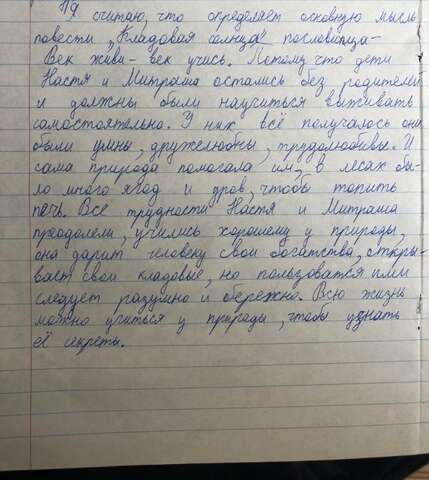 Я считаю, что определяет основную мысль
повести „Кладовая солнца" пословица-
Век живи- век учись. Потому что дети
Настя и Митраша остались без родителей
и должны были научиться выживать
самостоятельно. У них всё получалось они
были умны, дружелюбны, трудолюбивы. И
сама природа помогала им, в лесах бы-
ло много ягод и дров, чтобы топить
печь. Все трудности Настя и Митраша
преодолели, учились хорошему у природы,
она дарит человеку свои богатства, откры-
вает свои кладовые, но пользоватся ими
следует разумно и бережно. Всю жизнь
можно учиться у природы, чтобы узнать
её секреты.